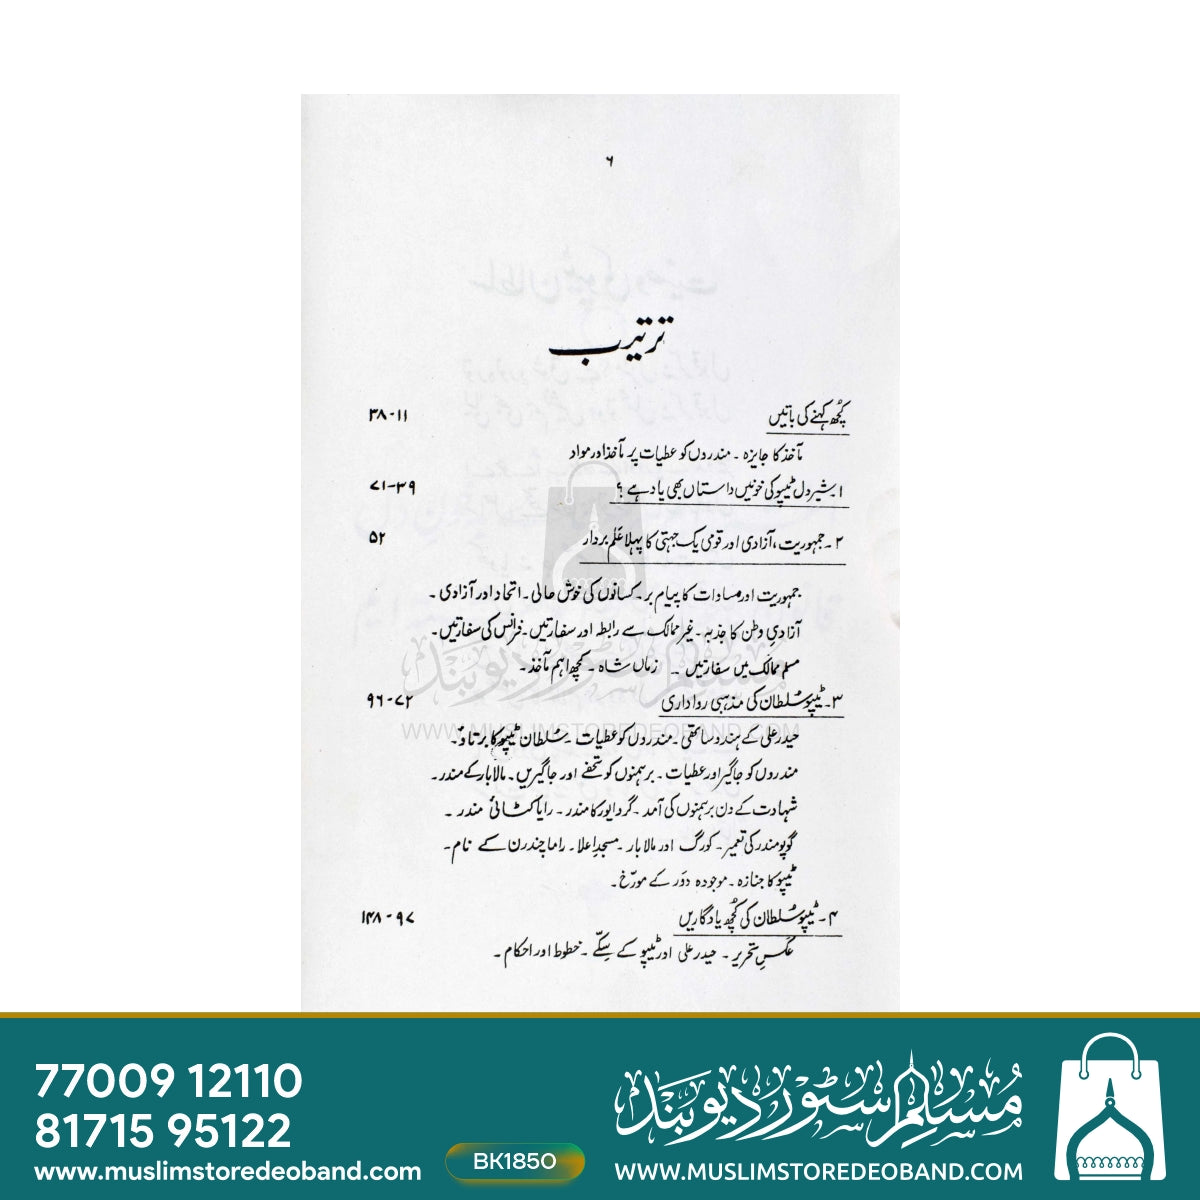 ۶
ترتیب
کچھ کہنے کی باتیں ۱۱-۳۸
مآخذ کا جایزہ ۔ مندروں کو عطیات پر مآخذ اور مواد
۱۔ شیر دل ٹیپو کی خونیں داستاں بھی یاد ہے ؟ ۳۹-۷۱
۲۔ جمہوریت، آزادی اور قومی یک جہتی کا پہلا عَلم بردار ۵۲
جمہوریت اور مساوات کا پیام بر۔ کسانوں کی خوش حالی۔ اتحاد اور آزادی۔
آزادیِ وطن کا جذبہ۔ غیر ممالک سے رابطہ اور سفارتیں۔ فرانس کی سفارتیں۔
مسلم ممالک میں سفارتیں ۔ زماں شاہ ۔ کچھ اہم مآخذ۔
۳۔ ٹیپو سُلطان کی مذہبی رواداری ۷۲-۹۶
حیدر علی کے ہندو ساتھی۔ مندروں کو عطیات ۔ سُلطان ٹیپو کا برتاؤ۔
مندروں کو جاگیر اور عطیات ۔ برہمنوں کو تحفے اور جاگیریں۔ مالابار کے مندر۔
شہادت کے دن برہمنوں کی آمد۔ گردایور کا مندر۔ رایا کٹائی مندر ۔
گوپو مندر کی تعمیر۔ کورگ اور مالابار ۔ مسجدِ اعلا۔ راما چندرن کے نام۔
ٹیپو کا جنازہ ۔ موجودہ دَور کے مورّخ۔
۴۔ ٹیپو سُلطان کی کچھ یادگاریں ۹۷-۱۴۸
عکسِ تحریر ۔ حیدر علی اور ٹیپو کے سِکّے ۔ خطوط اور احکام ۔
مُسلِم سٹور دیوبند
WWW.MUSLIMSTOREDEOBAND.COM
77009 12110
81715 95122
www.muslimstoredeoband.com
BK1850
مُسلِم سٹور دیوبند
WWW.MUSLIMSTOREDEOBAND.COM